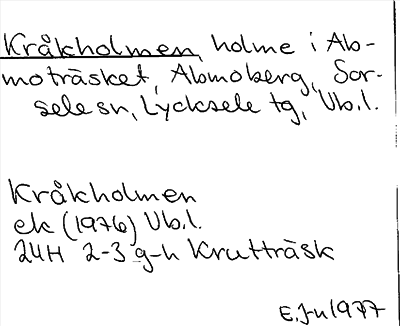 Kråkholmen, holme i Ab-
moträsket, Abmoberg, Sor-
sele sn, Lycksele tg, Vb.l.
Kråkholmen
ek (1976) Vb.l.
24H 2-3 g-h Krutträsk
E.J-n 1977